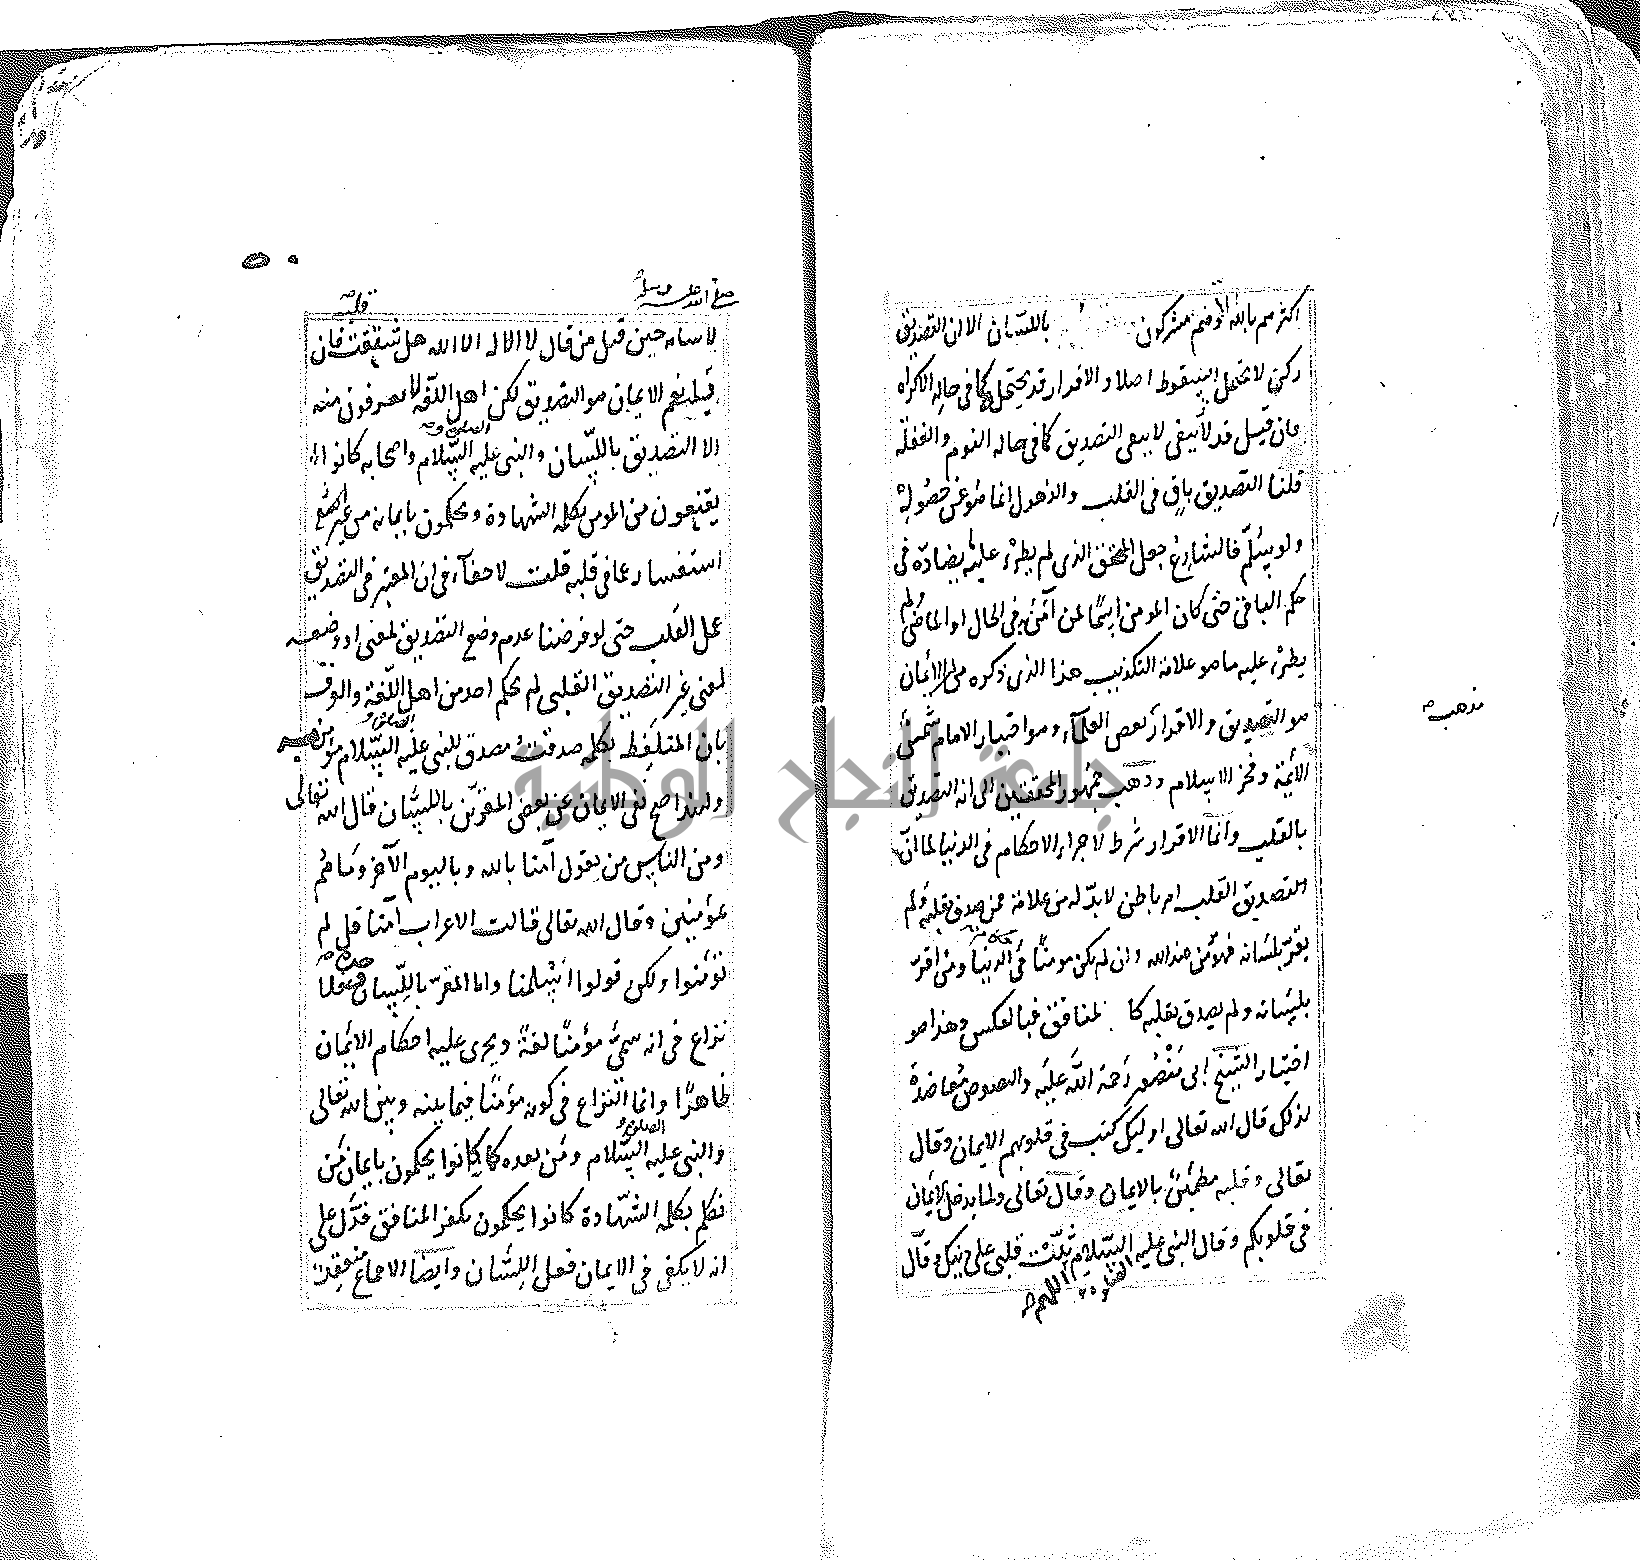 اكثرهم بالله الا وهم مشركون باللسان الا ان التصديق
ركن لا يحتمل السقوط اصلا والاقرار قد يحتمله كما فى حالة الاكراه
فان قيل قد لا يبقى التصديق كما فى حالة النوم والغفلة
قلنا التصديق باق فى القلب والذهول انما هو عن حصوله
ولو سلم فالشارع جعل المحقق الذى لم يطرء عليه يضاده فى
حكم الباقى حتى كان المومن اسما لمن آمن فى الحال او الماضى ولم
يطرء عليه ما هو علامة التكذيب هذا الذى ذكره من ان الايمان
هو التصديق والاقرار بعض العلماء وهو اختيار الامام شمس
مذهب
الائمة وفخر الاسلام وذهب جمهور المحققين الى انه التصديق
بالقلب وانما الاقرار شرط لاجراء الاحكام فى الدنيا لما ان
التصديق القلب امر باطن لا بد له من علامة فمن صدق بقلبه ولم
يقر بلسانه فهو مؤمن عند الله وان لم يكن مومنا فى الدنيا ومن اقر
بلسانه ولم يصدق بقلبه كا لمنافق فبالعكس وهذا هو
اختيار الشيخ ابى منصور رحمة الله عليه والنصوص معاضدة
لذلك قال الله تعالى اوليك كتب فى قلوبهم الايمان وقال
تعالى وقلبه مطمئن بالايمان وقال تعالى ولما يدخل الايمان
فى قلوبكم وقال النبى عليه السلام ثبت قلبى على دينك وقال
الصلوة اللهم
صلى الله عليه وسلم
قلبه
لاسامه حين قتل من قال لا اله الا الله هل شققت فان
قيل نعم الايمان هو التصديق لكن اهل اللغة لا يعرفون منه
الا التصديق باللسان والنبى عليه السلام واصحابه كانوا
الصلوة و
يقنعون من المومن بكلمة الشهادة ويحكمون بايمانه من غير
استفسار عما فى قلبه قلت لا خفاء فى ان المعتبر فى التصديق
عمل القلب حتى لو فرضنا عدم وضع التصديق لمعنى او وضعه
لمعنى غير التصديق القلبى لم يحكم احد من اهل اللغة والعرف
بان المتلفظ بكلمة صدقت مصدق للنبى عليه السلام مؤمن به
الصلوة و
ولهذا صح نفى الايمان عن بعض المقرين باللسان قال الله تعالى
ومن الناس من يقول آمنا بالله وباليوم الآخر وما هم
بمؤمنين وقال الله تعالى قالت الاعراب آمنا قل لم
تؤمنوا ولكن قولوا اسلمنا واما المقر باللسان وحده فلا
نزاع فى انه سمى مؤمنا لغة ويجرى عليه احكام الايمان
ظاهرا وانما النزاع فى كونه مؤمنا فيما بينه وبين الله تعالى
والنبى عليه السلام ومن بعده كما كانوا يحكمون بايمان من
الصلوة و
تكلم بكلمة الشهادة كانوا يحكمون بكفر المنافق فدل على
انه لا يكفى فى الايمان فعل اللسان وايضا الاجماع منعقد
جامعة النجاح الوطنية